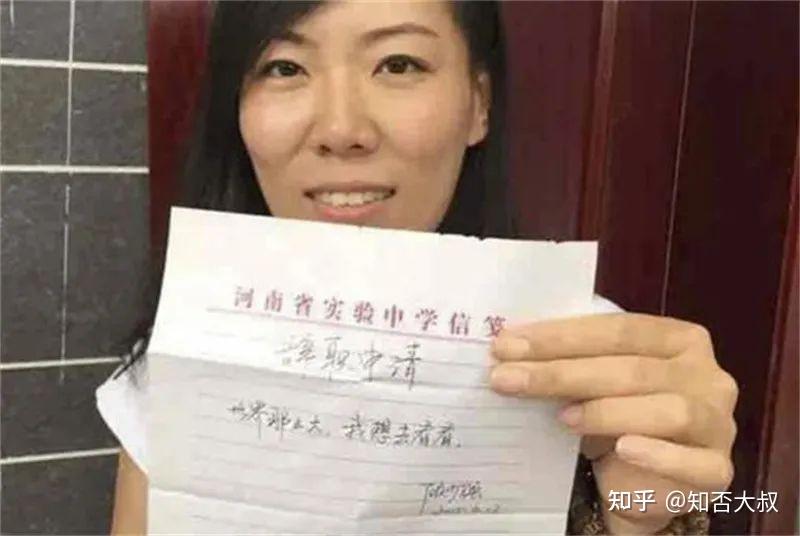 河南省实验中学信笺
辞职申请
世界那么大，我想去看看。
知乎 @知否大叔